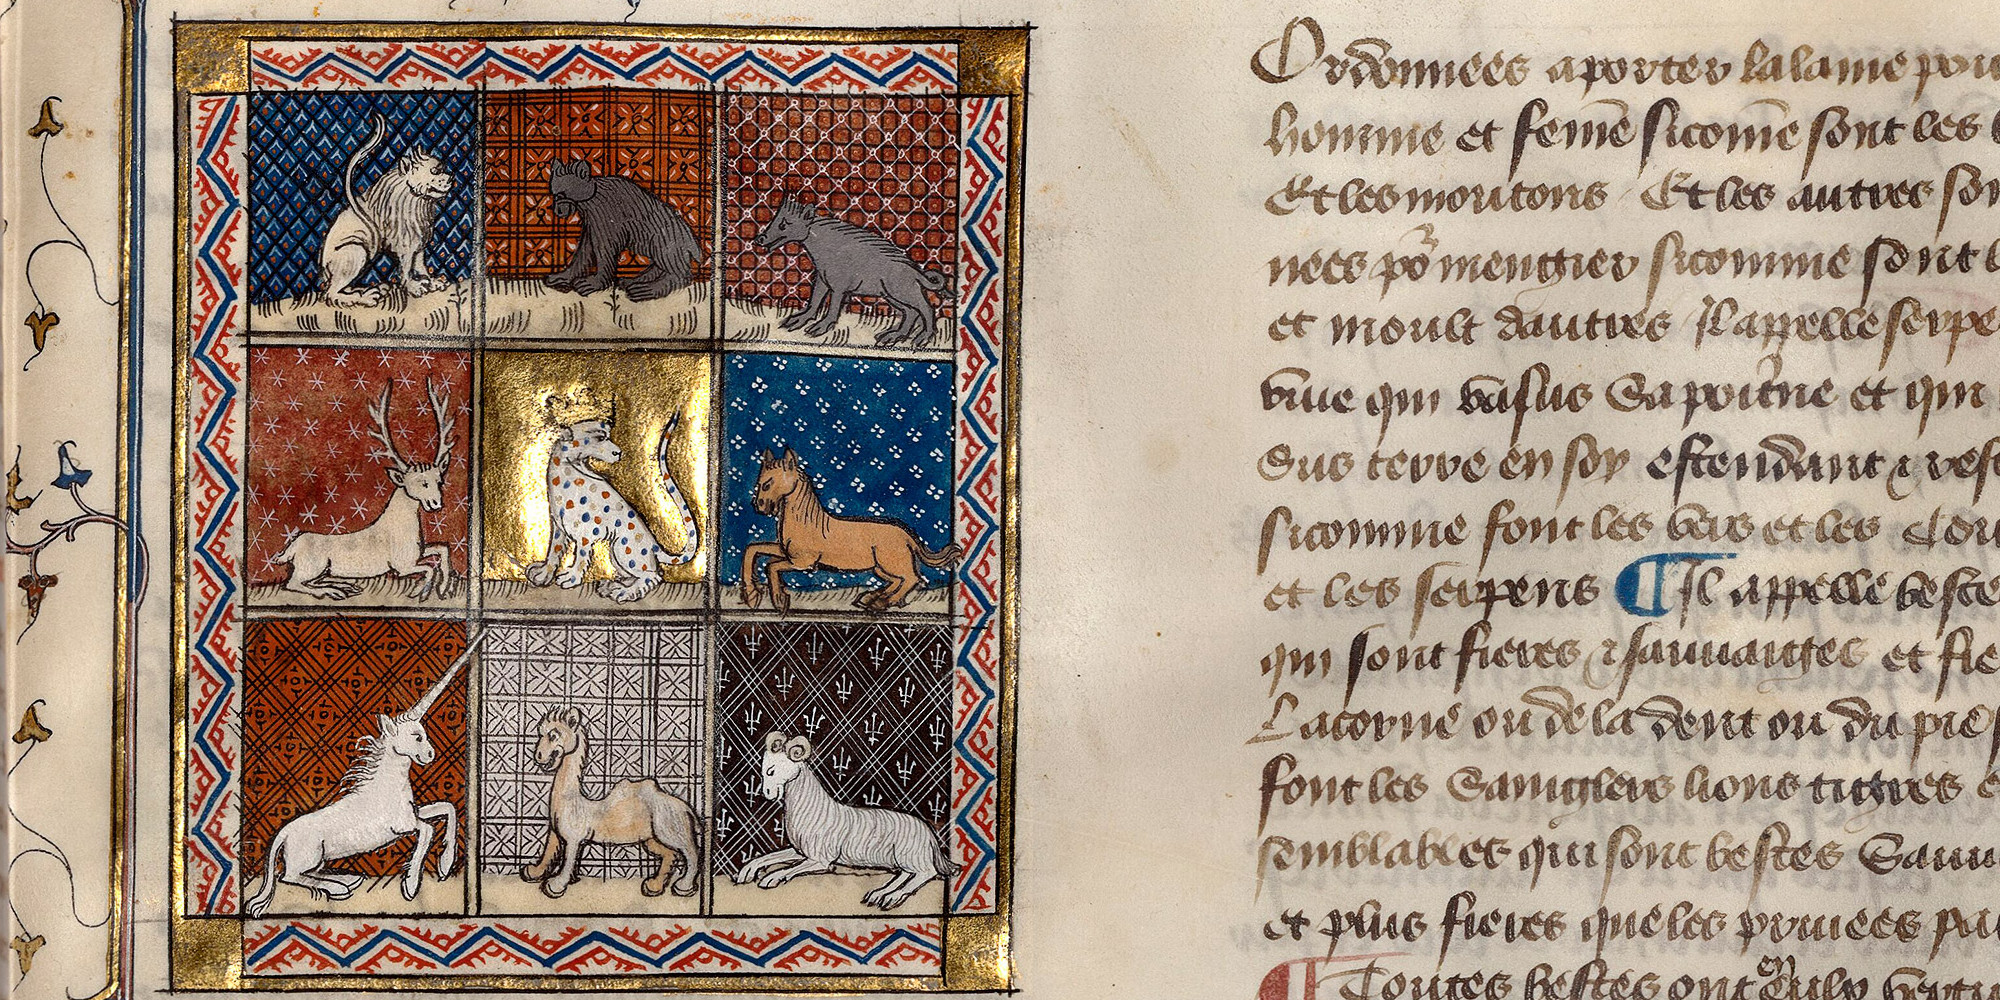 Ordonnees a porter la laine pour
homme et feme sicome sont les
Et les moutons Et les autres son
nees por mengier sicomme sont l
et moult dautres Il appelle serpe
vne qui va sus sa poitrine et qui
sus terre en soy estendant &
sicomme sont les vers et les
et les serpens ¶ Il appelle beste
qui sont fieres & sauuaiges et fie
La corne ou de la dent ou du pie
sont les Sangliers lions tigres
semblables qui sont bestes Sauu
et plus fieres que les priuees
¶ Toutes bestes ont en